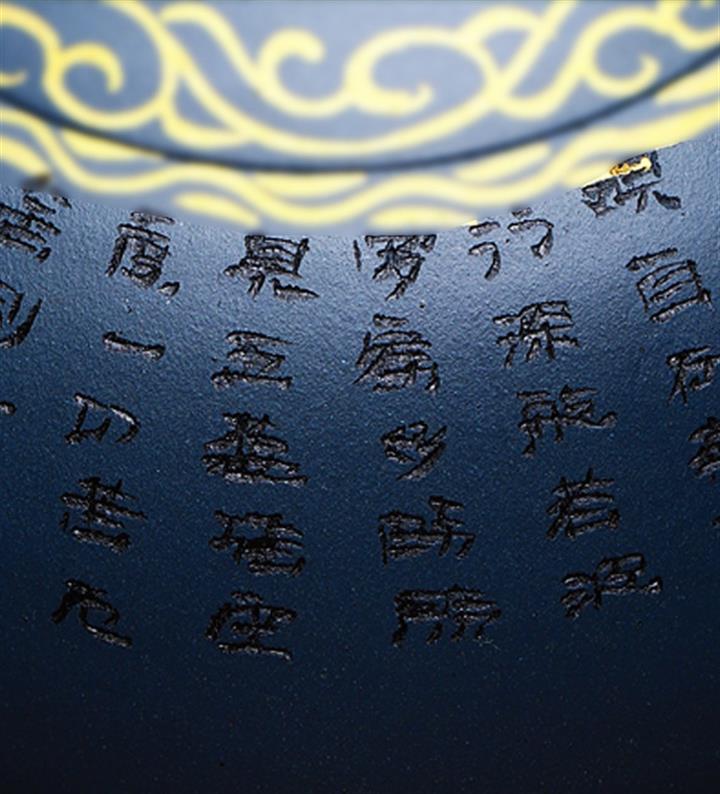 觀自在菩
行深般若波
羅蜜多時照
見五蘊皆空
度一切苦厄